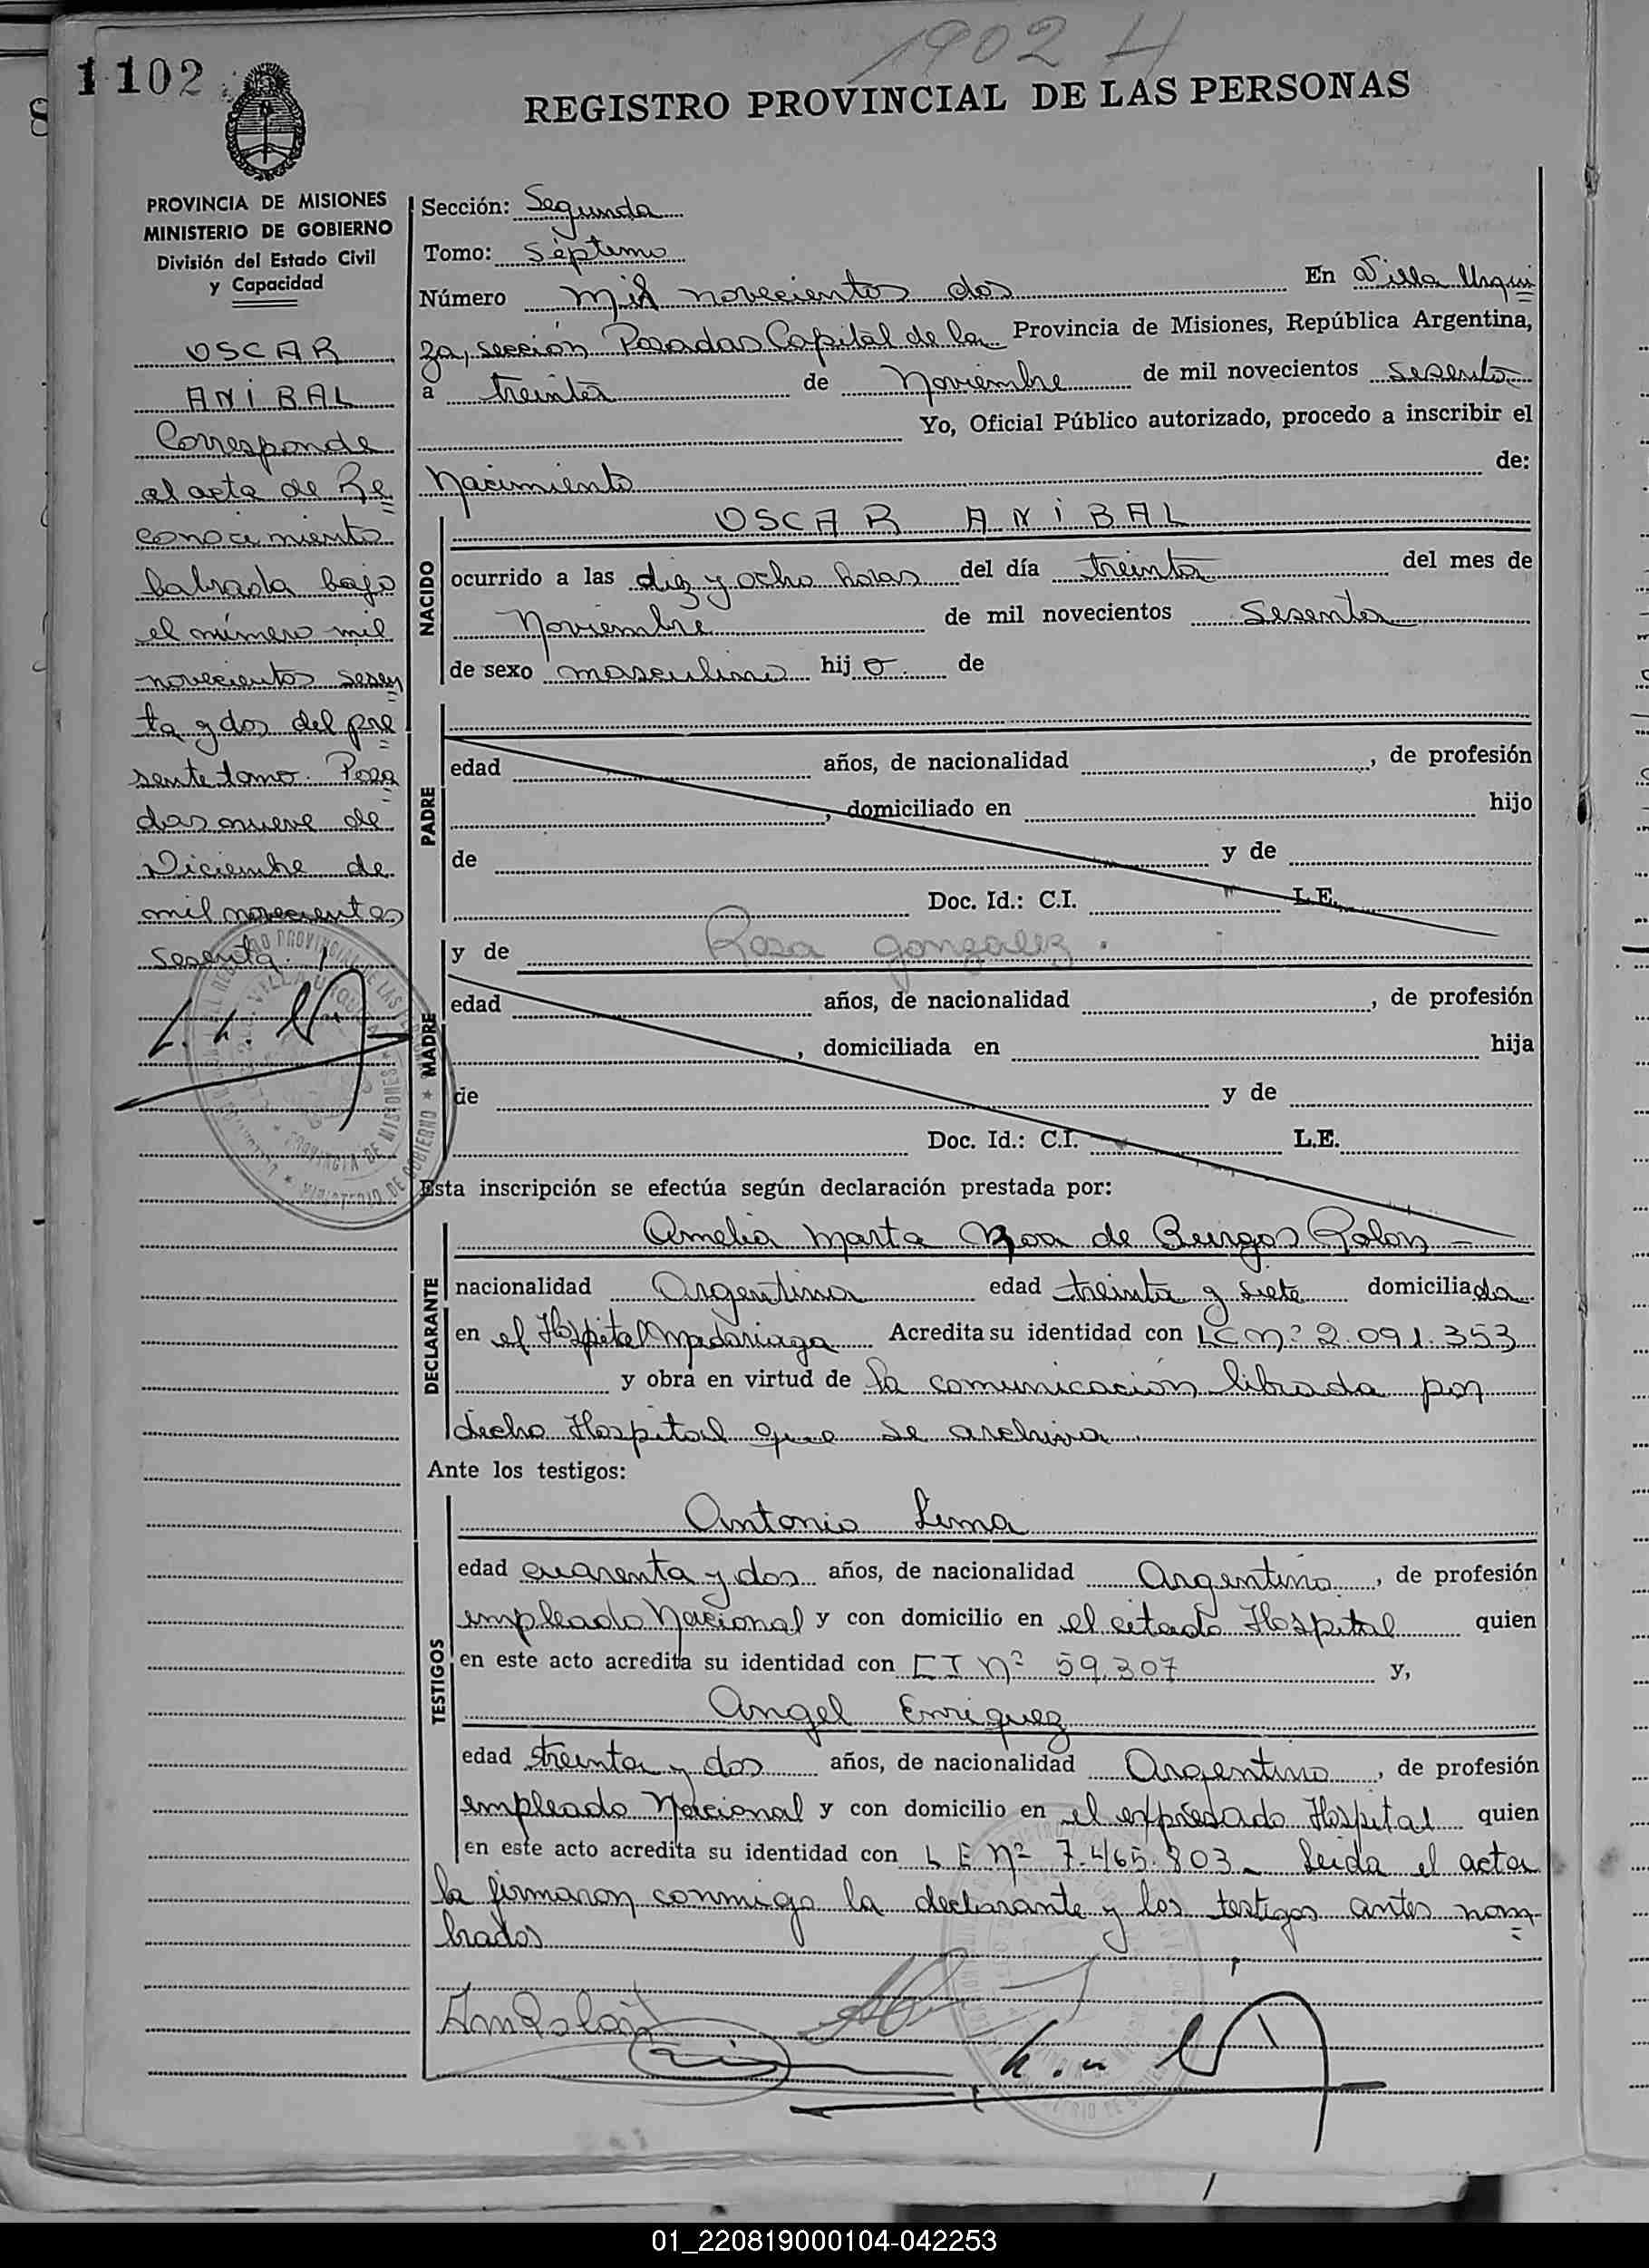 1902 H
1 102
REGISTRO PROVINCIAL DE LAS PERSONAS
PROVINCIA DE MISIONES
MINISTERIO DE GOBIERNO
División del Estado Civil
y Capacidad
OSCAR
ANIBAL
Corresponde
al acta de Re
conocimiento
labrada bajo
el número mil
novecientos sesen
ta y dos del pre
sente tomo. Posa
das nueve de
Diciembre de
mil novecientos
sesenta.
Sección: Segunda
Tomo: Séptimo
Número mil novecientos dos En Villa Urqui
za, sección Posadas Capital de la Provincia de Misiones, República Argentina,
a treinta de Noviembre de mil novecientos sesenta
Yo, Oficial Público autorizado, procedo a inscribir el
Nacimiento de:
NACIDO
OSCAR ANIBAL
ocurrido a las diez y ocho horas del día treinta del mes de
Noviembre de mil novecientos Sesenta
de sexo masculino hijo de
PADRE
edad años, de nacionalidad , de profesión
, domiciliado en hijo
de y de
Doc. Id.: C.I. L.E.
MADRE
y de Rosa gonzalez.
edad años, de nacionalidad , de profesión
, domiciliada en hija
de y de
Doc. Id.: C.I. L.E.
Esta inscripción se efectúa según declaración prestada por:
DECLARANTE
Amelia Marta de Burgos Rolon
nacionalidad Argentina edad treinta y siete domiciliada
en el Hospital Madariaga Acredita su identidad con LC nº 2.091.353
y obra en virtud de la comunicación librada por
dicho Hospital que se archiva.
Ante los testigos:
TESTIGOS
Antonio Lima
edad cuarenta y dos años, de nacionalidad Argentino, de profesión
empleado Nacional y con domicilio en el citado Hospital quien
en este acto acredita su identidad con CI nº 59.307 y,
Angel Enriquez
edad treinta y dos años, de nacionalidad Argentino, de profesión
empleado Nacional y con domicilio en el expresado Hospital quien
en este acto acredita su identidad con LE nº 7.465.803. Leida el acta
la firmaron conmigo la declarante y los testigos antes nom
brados
01_220819000104-042253